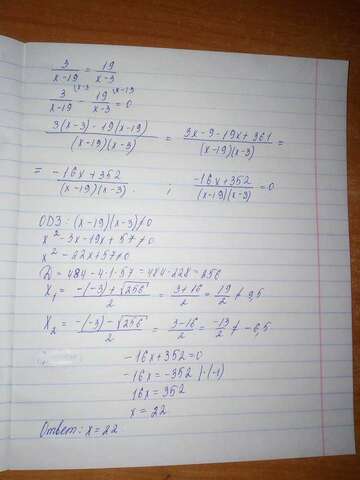 3/(x-19) = 19/(x-3)
3/(x-19) \x-3 - 19/(x-3) \x-19 = 0
(3(x-3) - 19(x-19))/((x-19)(x-3)) = (3x-9-19x+361)/((x-19)(x-3)) =
= (-16x+352)/((x-19)(x-3)) ; (-16x+352)/((x-19)(x-3)) = 0
ОДЗ: (x-19)(x-3)≠0
x²-3x-19x+57≠0
x²-22x+57≠0
D=484-4·1·57=484-228=256
x₁ = (-(-3)+√256)/2 = (3+16)/2 = 19/2 ≠ 9,5
x₂ = (-(-3)-√256)/2 = (3-16)/2 = -13/2 ≠ -6,5
-16x+352=0
-16x=-352 |·(-1)
16x=352
x=22
Ответ: x=22